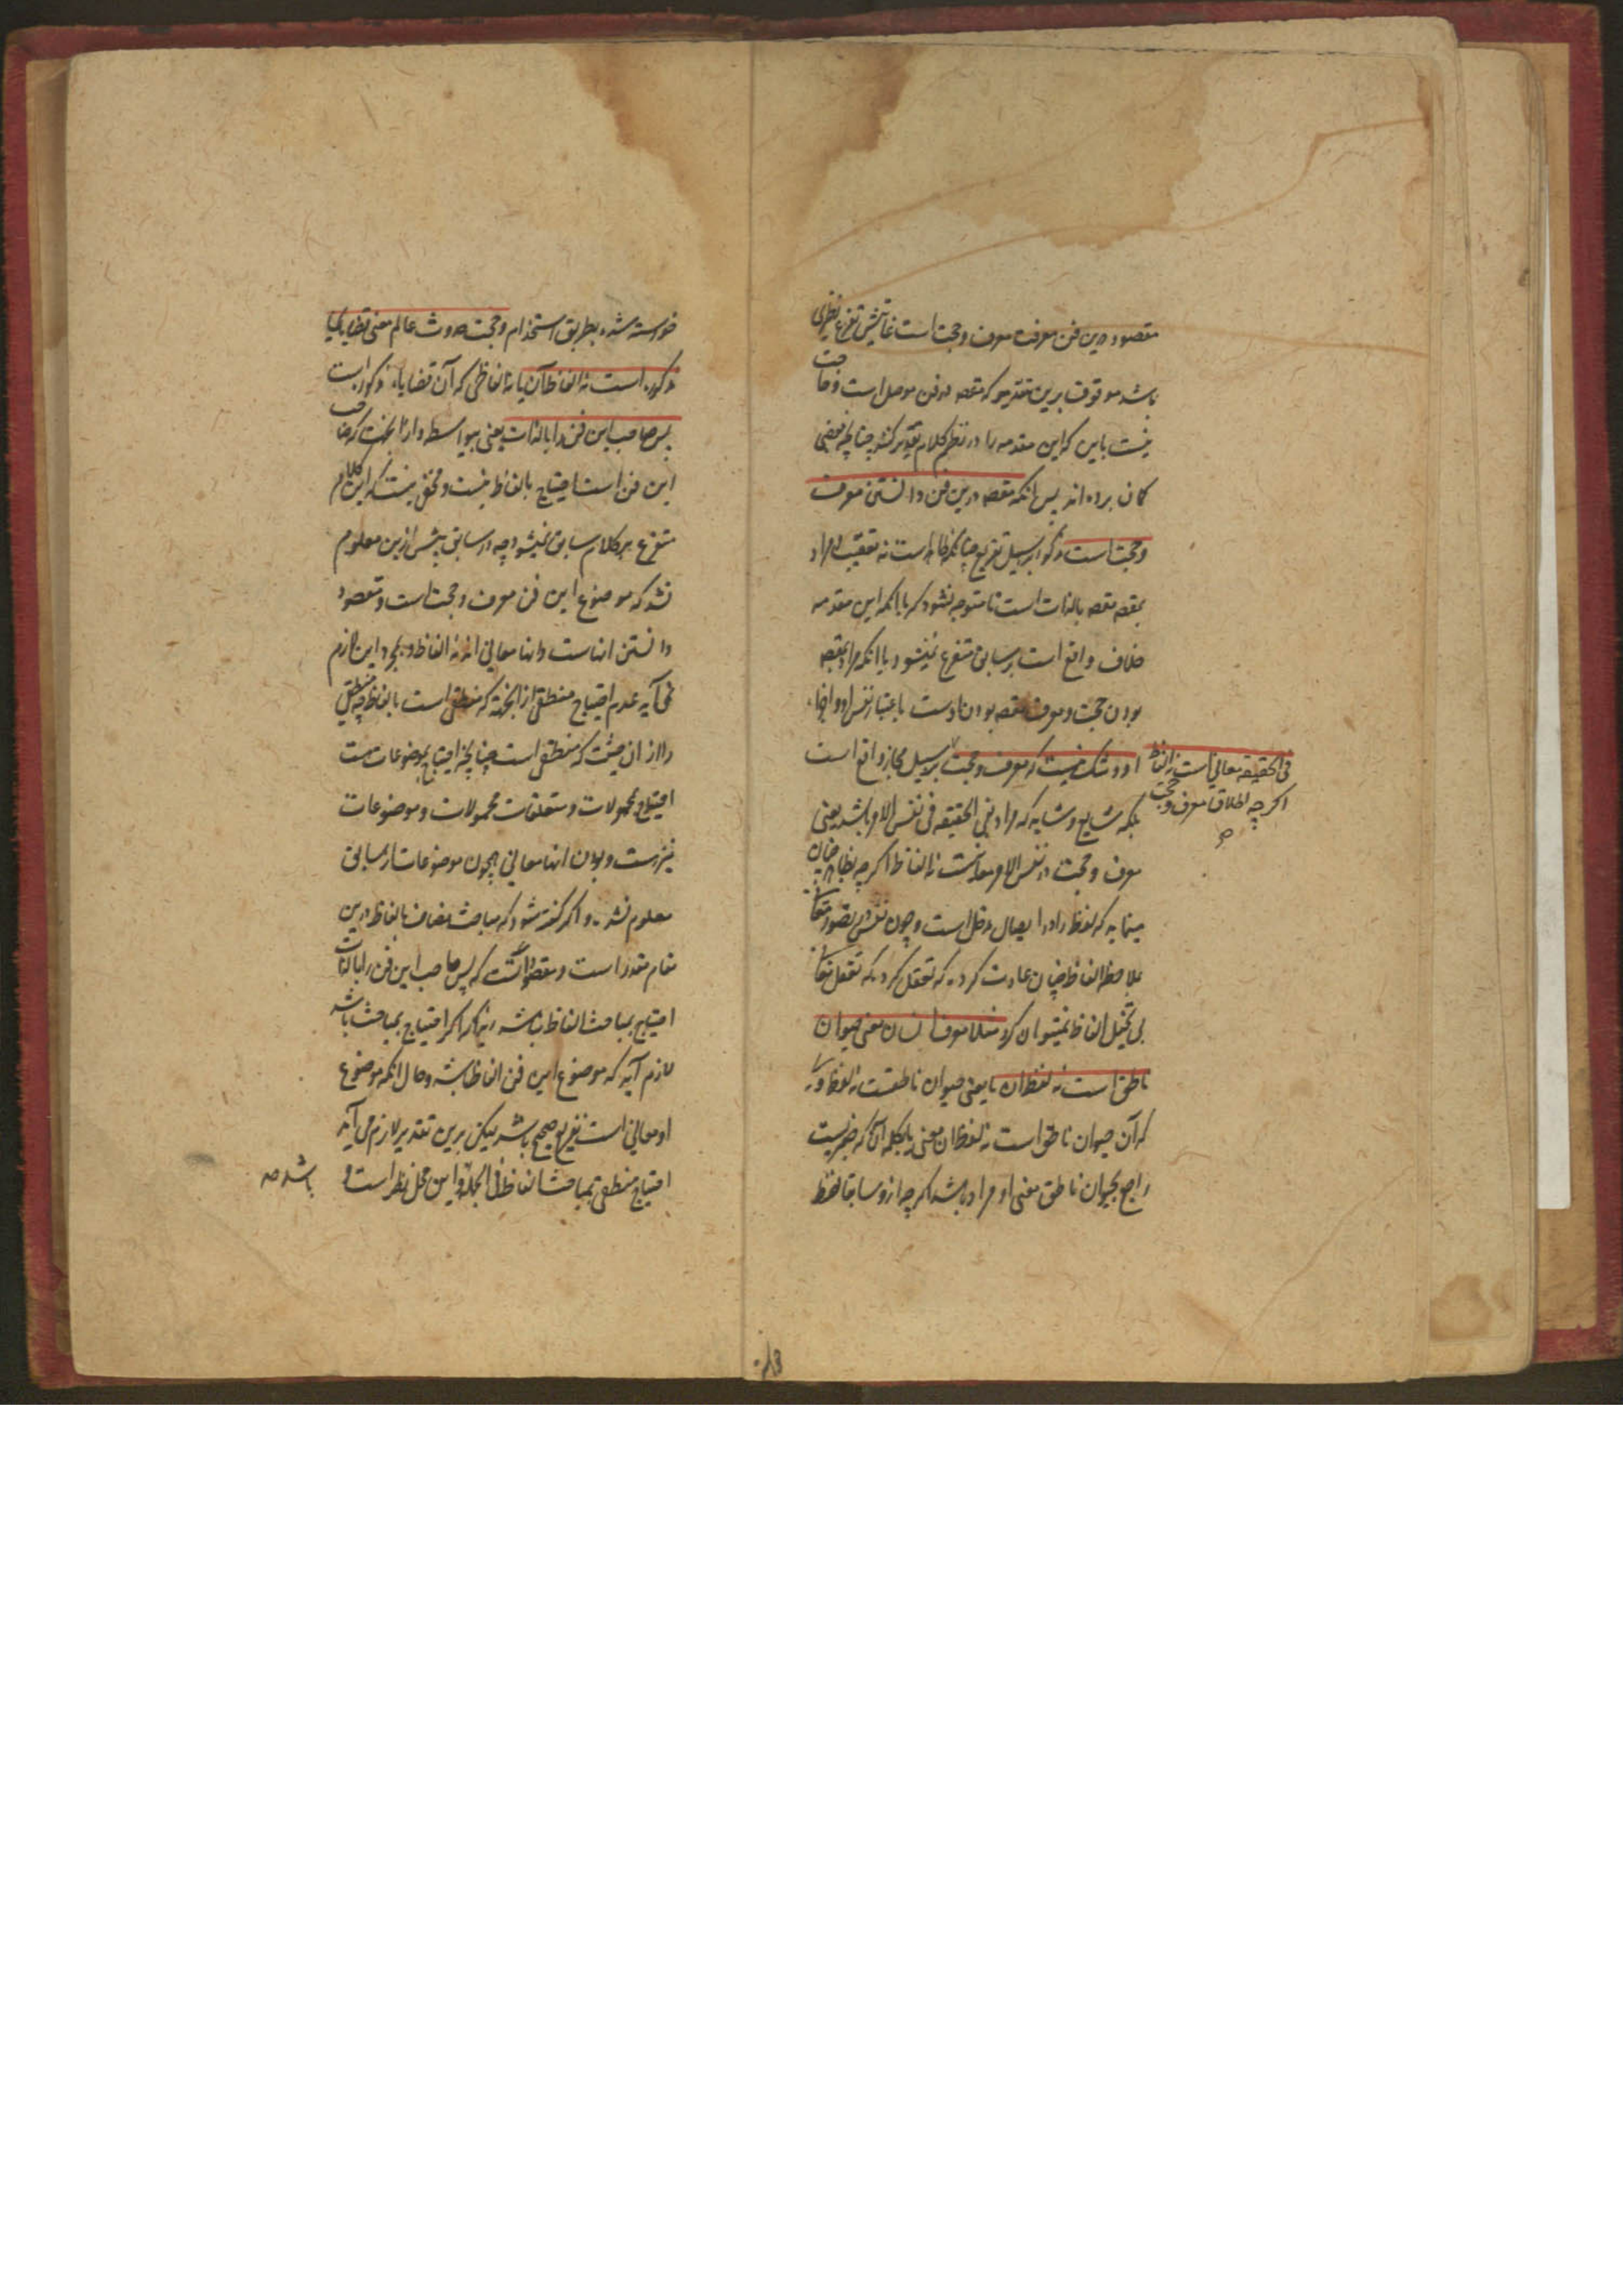 مقصود درین فن معرفت معرف و حجت است غایتش تفرع نظری
باشد موقوف برین مقدمه که مقصد در فن موصل است و حاجت
نیست باین که این مقدمه را در نظم کلام تقدیر کنند چنانچه بعضی
کمان برده‌اند پس انکه مقصد درین فن دانستن معرف
و حجت است مذکور بر سبیل تفریع چنانکه ظاهر است نه تعقیب و مراد
بمقصد مقصد بالذات است تا متوجه نشود که با آنکه این مقدمه
خلاف واقع است بر سابق متفرع نمیشود با آنکه مراد بمقصد
بودن حجت و معرف مقصد بودن اوست باعتبار نفس او و اجزاء
او و شک نیست که معرف و حجت بر سبیل مجاز واقع است
فی الحقیقه معانی است نه الفاظ
اکرچه اطلاق معرف و حجت
صح
بلکه شایع و شاید که مراد بفی الحقیقه فی نفس الامر باشد یعنی
معرف و حجت در نفس الامر معانیست نه الفاظ اکرچه بظاهر چنان
مینماید که لفظ را در ایصال دخل است و چون نفس در تصور معانی
بملاحظه الفاظ چنان عادت کرده که تعقل معانی
بی تخیل الفاظ نمیتوان کرد مثلا معرف انسان معنی حیوان
ناطق است نه لفظ آن یا یعنی حیوان ناطقست نه لفظ
که آن حیوان ناطق است نه لفظ آن معنی بالجمله آن که ضمیریست
راجع بحیوان ناطق معنی او مراد باشد اکرچه ازو سابقا لفظ
خواسته شده بطریق استخدام و حجت حدوث عالم معنی قضایای
مذکوره است نه الفاظ آن یا نه الفاظی که آن قضایاء مذکوره است
پس صاحب این فن را بالذات یعنی بیواسطه و ازان جهت که صاحب
این فن است احتیاج بالفاظ نیست و مخفی نیست که این کلام
متفرع بر کلام سابق نمیشود چه در سابق پیش ازین معلوم
نشد که موضوع این فن معرف و حجت است و مقصود
دانستن انهاست و انها معانی اند نه الفاظ و بمجرد این لازم
نمی آید عدم احتیاج منطقی از انجهة که منطقی است بالفاظ چه منطقی
را از ان حیثیت که منطقی است چنانچه احتیاج بموضوعات هست
احتیاج بمحمولات و متعلقات محمولات و موضوعات
نیز هست و بودن انها معانی همچون موضوعات از سابق
معلوم نشده و اکر کفته شود که مباحث مضاف بالفاظ درین
مقام مقدر است و مقصود آنست که پس صاحب این فن را بالذات
احتیاج بمباحث الفاظ نباشد زیرا که اکر احتیاج بمباحث باشد
لازم آید که موضوع این فن الفاظ باشد و حال انکه موضوع
او معانی است تفریع صحیح باشد لیکن برین تقدیر لازم می آید
احتیاج منطقی بمباحث الفاظ فی الجمله و این محل نظر است و
باشد صح